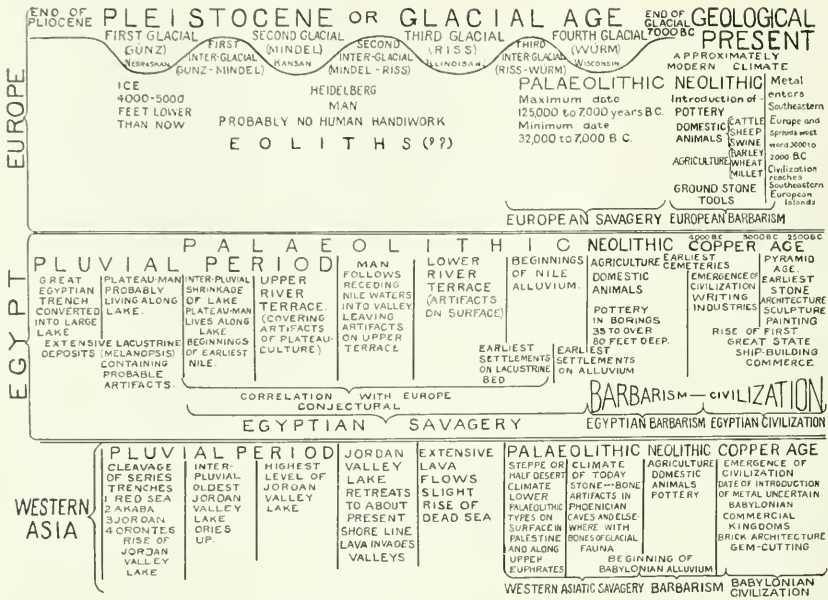 END OF
PLIOCENE
PLEISTOCENE OR GLACIAL AGE
END OF
GLACIAL
7000 BC
GEOLOGICAL
PRESENT
APPROXIMATELY
MODERN CLIMATE
EUROPE
FIRST GLACIAL
(GÜNZ)
NEBRASKAN
FIRST
INTER-GLACIAL
(GUNZ-MINDEL)
SECOND GLACIAL
(MINDEL)
KANSAN
SECOND
INTER-GLACIAL
(MINDEL-RISS)
THIRD GLACIAL
(RISS)
ILLINOISAN
THIRD
INTER-GLACIAL
(RISS-WÜRM)
FOURTH GLACIAL
(WÜRM)
WISCONSIN
ICE
4000-5000
FEET LOWER
THAN NOW
HEIDELBERG
MAN
PROBABLY NO HUMAN HANDIWORK
EOLITHS(??)
PALAEOLITHIC
Maximum date
125,000 to 7,000 years B.C.
Minimum date
32,000 to 7,000 B C.
NEOLITHIC
Introduction of
POTTERY
DOMESTIC
ANIMALS
CATTLE
SHEEP
SWINE
AGRICULTURE
BARLEY
WHEAT
MILLET
GROUND STONE
TOOLS
Metal
enters
Southeastern
Europe and
Spreads west
ward 3000 to
2000 BC
Civilization
reaches
Southeastern
European
Islands
EUROPEAN SAVAGERY
EUROPEAN BARBARISM
EGYPT
PALAEOLITHIC
NEOLITHIC
4000 BC
3000 BC
2500 BC
COPPER AGE
PLUVIAL PERIOD
GREAT
EGYPTIAN
TRENCH
CONVERTED
INTO LARGE
LAKE
PLATEAU-MAN
PROBABLY
LIVING ALONG
LAKE.
EXTENSIVE LACUSTRINE
DEPOSITS (MELANOPSIS)
CONTAINING
PROBABLE
ARTIFACTS.
INTER-PLUVIAL
SHRINKAGE
OF LAKE
PLATEAU-MAN
LIVES ALONG
LAKE
BEGINNINGS
OF EARLIEST
NILE.
UPPER
RIVER
TERRACE.
(COVERING
ARTIFACTS
OF PLATEAU-
CULTURE)
MAN
FOLLOWS
RECEDING
NILE WATERS
INTO VALLEY
LEAVING
ARTIFACTS
ON UPPER
TERRACE
LOWER
RIVER
TERRACE
(ARTIFACTS
ON SURFACE)
BEGINNINGS
OF NILE
ALLUVIUM.
EARLIEST
SETTLEMENTS
ON LACUSTRINE
BED
EARLIEST
SETTLEMENTS
ON ALLUVIUM
AGRICULTURE
DOMESTIC
ANIMALS
POTTERY
IN BORINGS
35 TO OVER
80 FEET DEEP.
EARLIEST
CEMETERIES
EMERGENCE OF
CIVILIZATION
WRITING
INDUSTRIES
PYRAMID
AGE.
EARLIEST
STONE
ARCHITECTURE
SCULPTURE
PAINTING
RISE OF FIRST
GREAT STATE
SHIP-BUILDING
COMMERCE
CORRELATION WITH EUROPE
CONJECTURAL
BARBARISM—CIVILIZATION
EGYPTIAN SAVAGERY
EGYPTIAN BARBARISM
EGYPTIAN CIVILIZATION
WESTERN
ASIA
PLUVIAL PERIOD
CLEAVAGE
OF SERIES
TRENCHES
1 RED SEA
2 AKABA
3 JORDAN
4 ORONTES
RISE OF
JORDAN
VALLEY
LAKE
INTER-
PLUVIAL
OLDEST
JORDAN
VALLEY
LAKE
DRIES
UP.
HIGHEST
LEVEL OF
JORDAN
VALLEY
LAKE
JORDAN
VALLEY
LAKE
RETREATS
TO ABOUT
PRESENT
SHORE LINE
LAVA INVADES
VALLEYS
EXTENSIVE
LAVA
FLOWS
SLIGHT
RISE OF
DEAD SEA
PALAEOLITHIC
NEOLITHIC
COPPER AGE
STEPPE OR
HALF DESERT
CLIMATE
LOWER
PALAEOLITHIC
TYPES ON
SURFACE IN
PALESTINE
AND ALONG
UPPER
EUPHRATES
CLIMATE
OF TODAY
STONE—BONE
ARTIFACTS IN
PHOENICIAN
CAVES AND ELSE-
WHERE WITH
BONES OF GLACIAL
FAUNA
AGRICULTURE
DOMESTIC
ANIMALS
POTTERY
BEGINNING OF
BABYLONIAN ALLUVIUM
EMERGENCE OF
CIVILIZATION
DATE OF INTRODUCTION
OF METAL UNCERTAIN
BABYLONIAN
COMMERCIAL
KINGDOMS
BRICK ARCHITECTURE
GEM-CUTTING
WESTERN ASIATIC SAVAGERY
BARBARISM
BABYLONIAN
CIVILIZATION